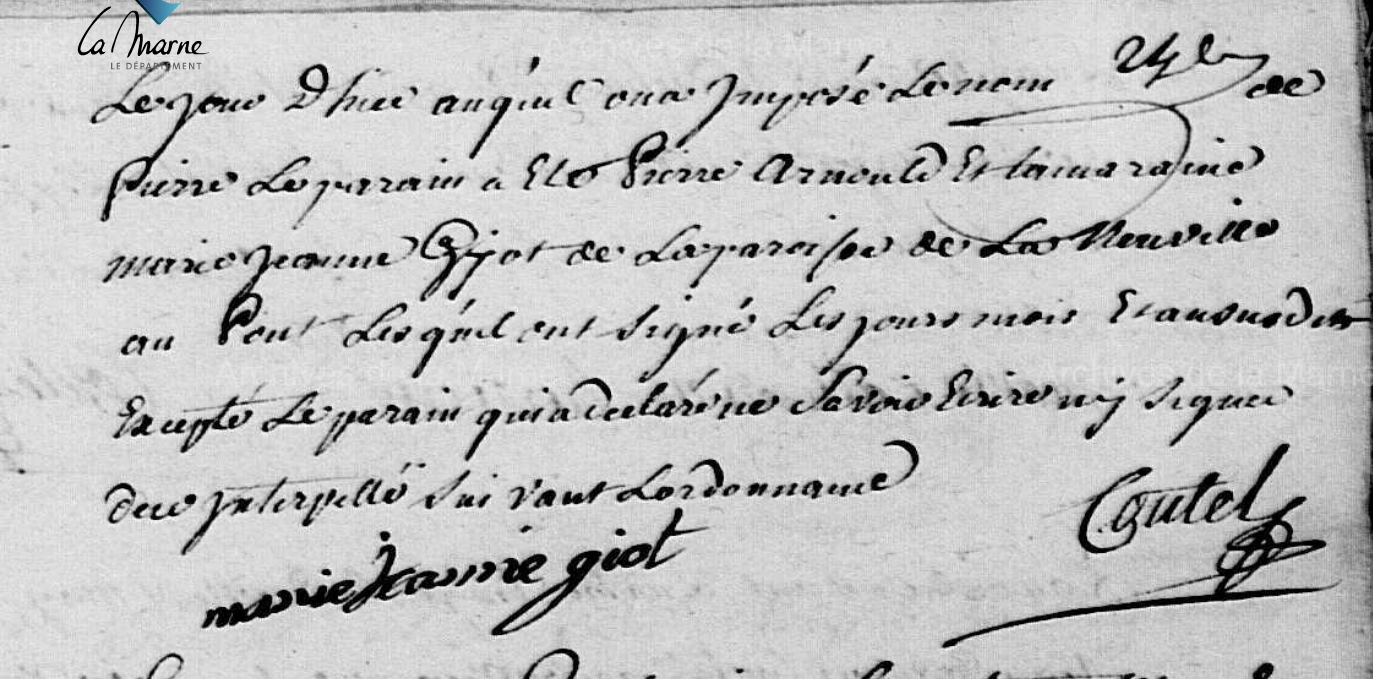 La Marne
LE DÉPARTEMENT
Le jour d'hier auquel on a Imposé Le nom de
Pierre Le parain a Eté Pierre Arnould Et la maraine
marie jeanne Gijot de La paroisse de La Neuville
au Pont Lesquel ont signé Les jours mois Et an susdits
Excepté Le parain qui a declaré ne Savoir Ecrire ny signer
de ce Interpellé suivant Lordonnance
Coutel
marie jeanne giot